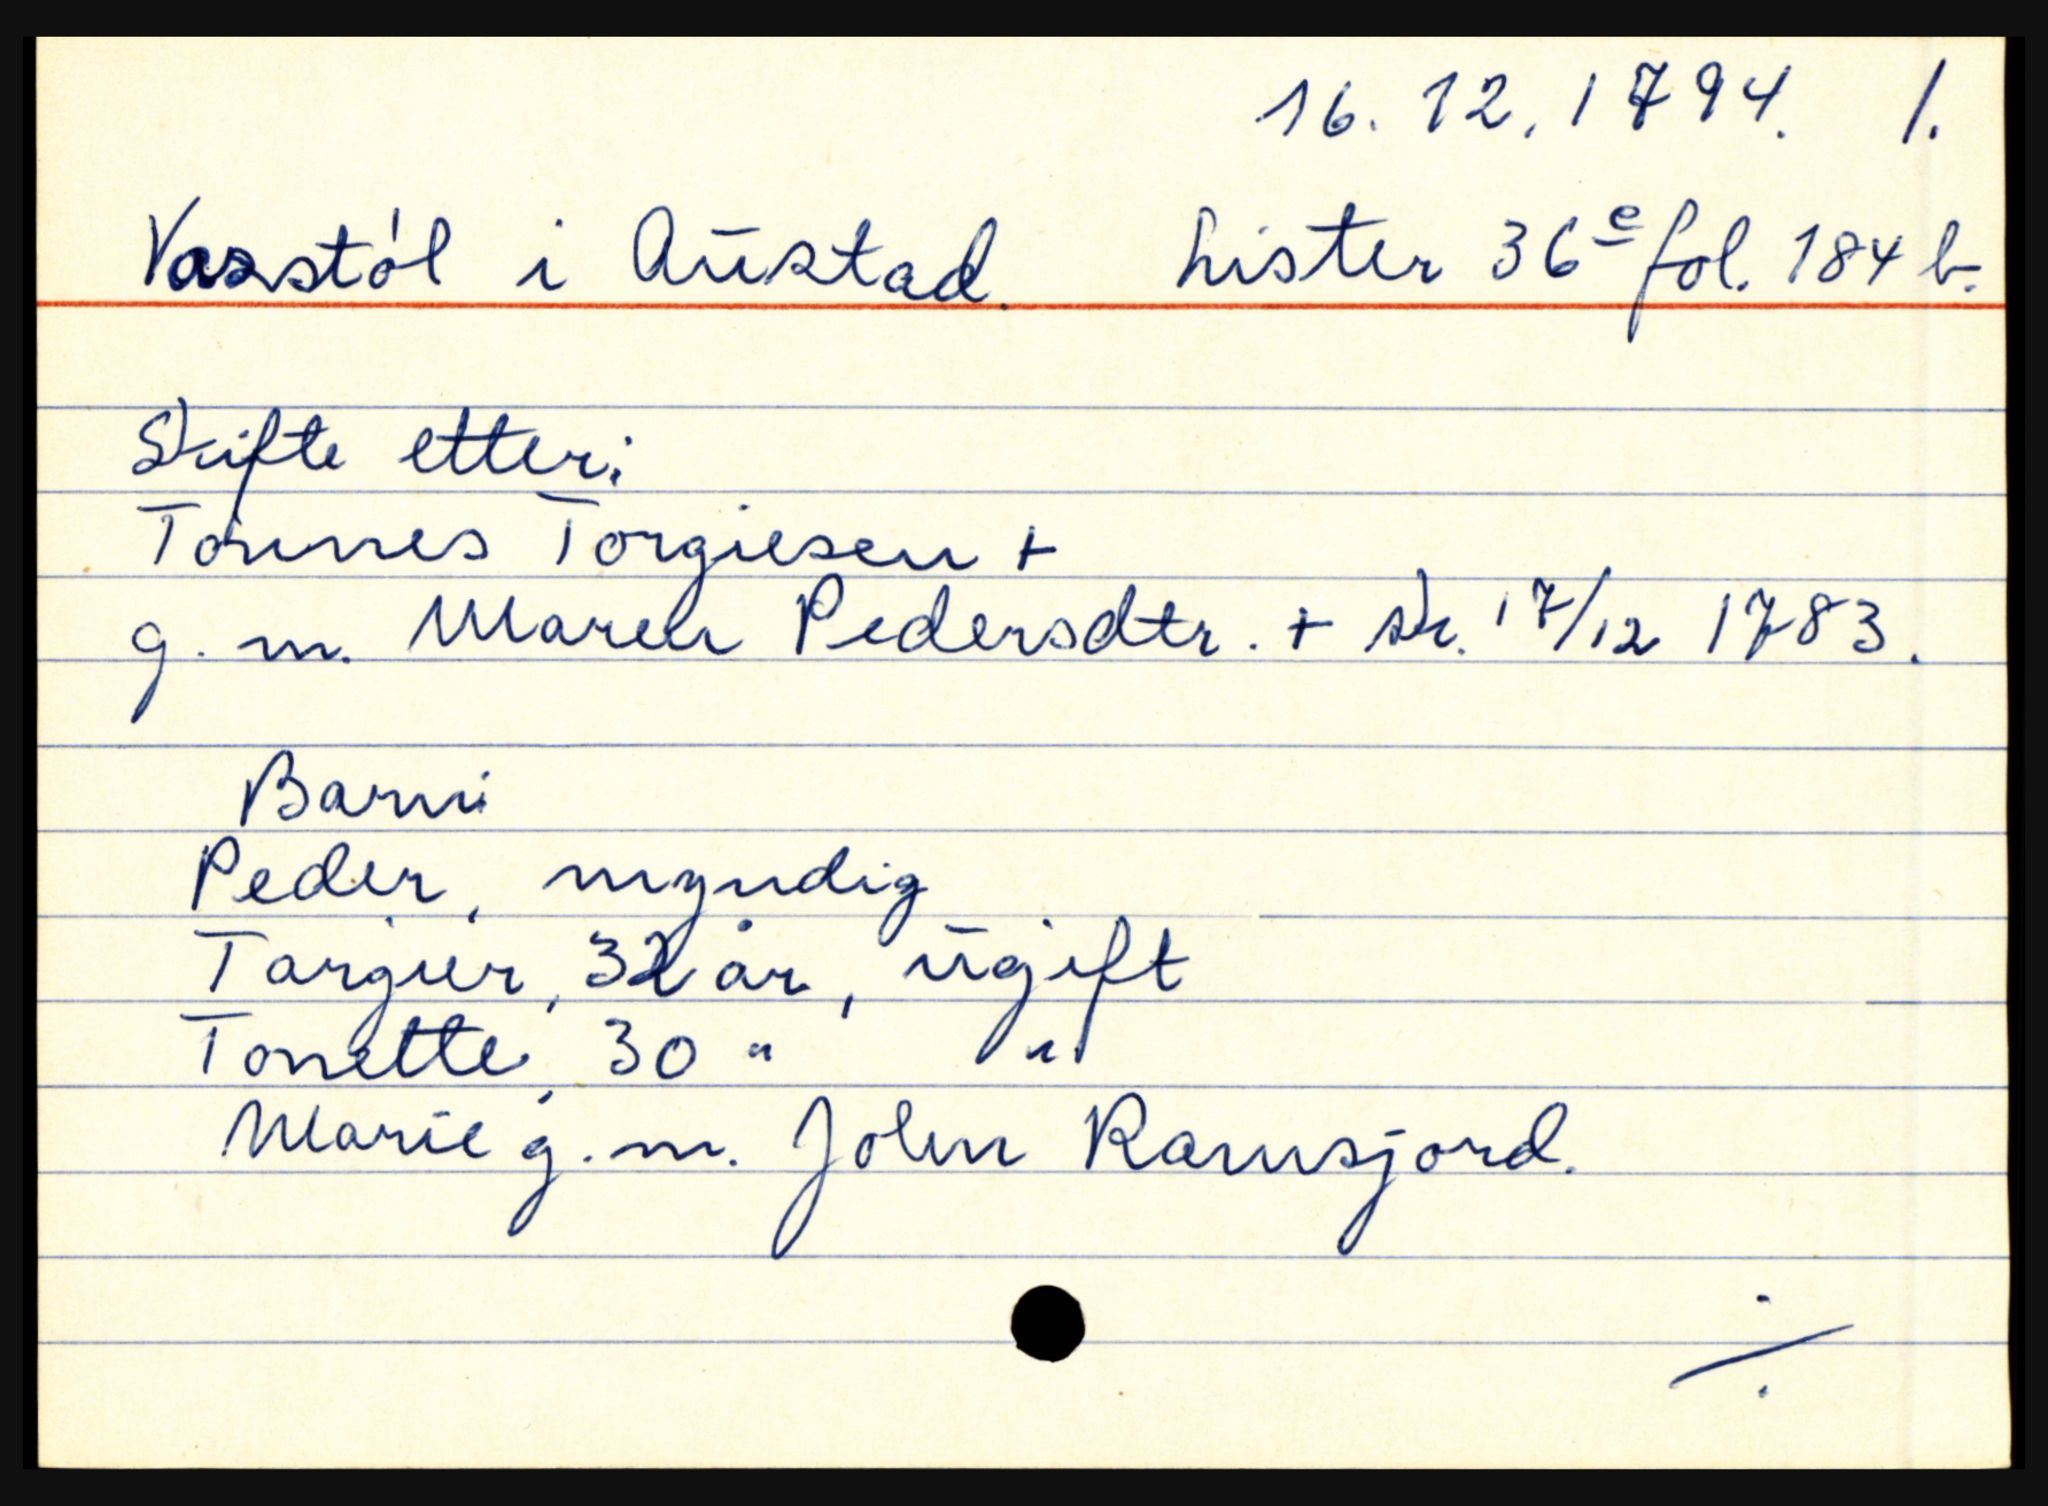 16.12.1794. 1.
Vasstøl i Austad. Lister 36e fol. 184 b.
Skifte etter:
Tønnes Torgiesen +
g. m. Maren Pedersdtr. + sk. 17/12 1783.
Barn:
Peder, myndig
Targier, 32 år, ugift
Tonette, 30 " "
Marie g. m. John Ramsjord.
÷